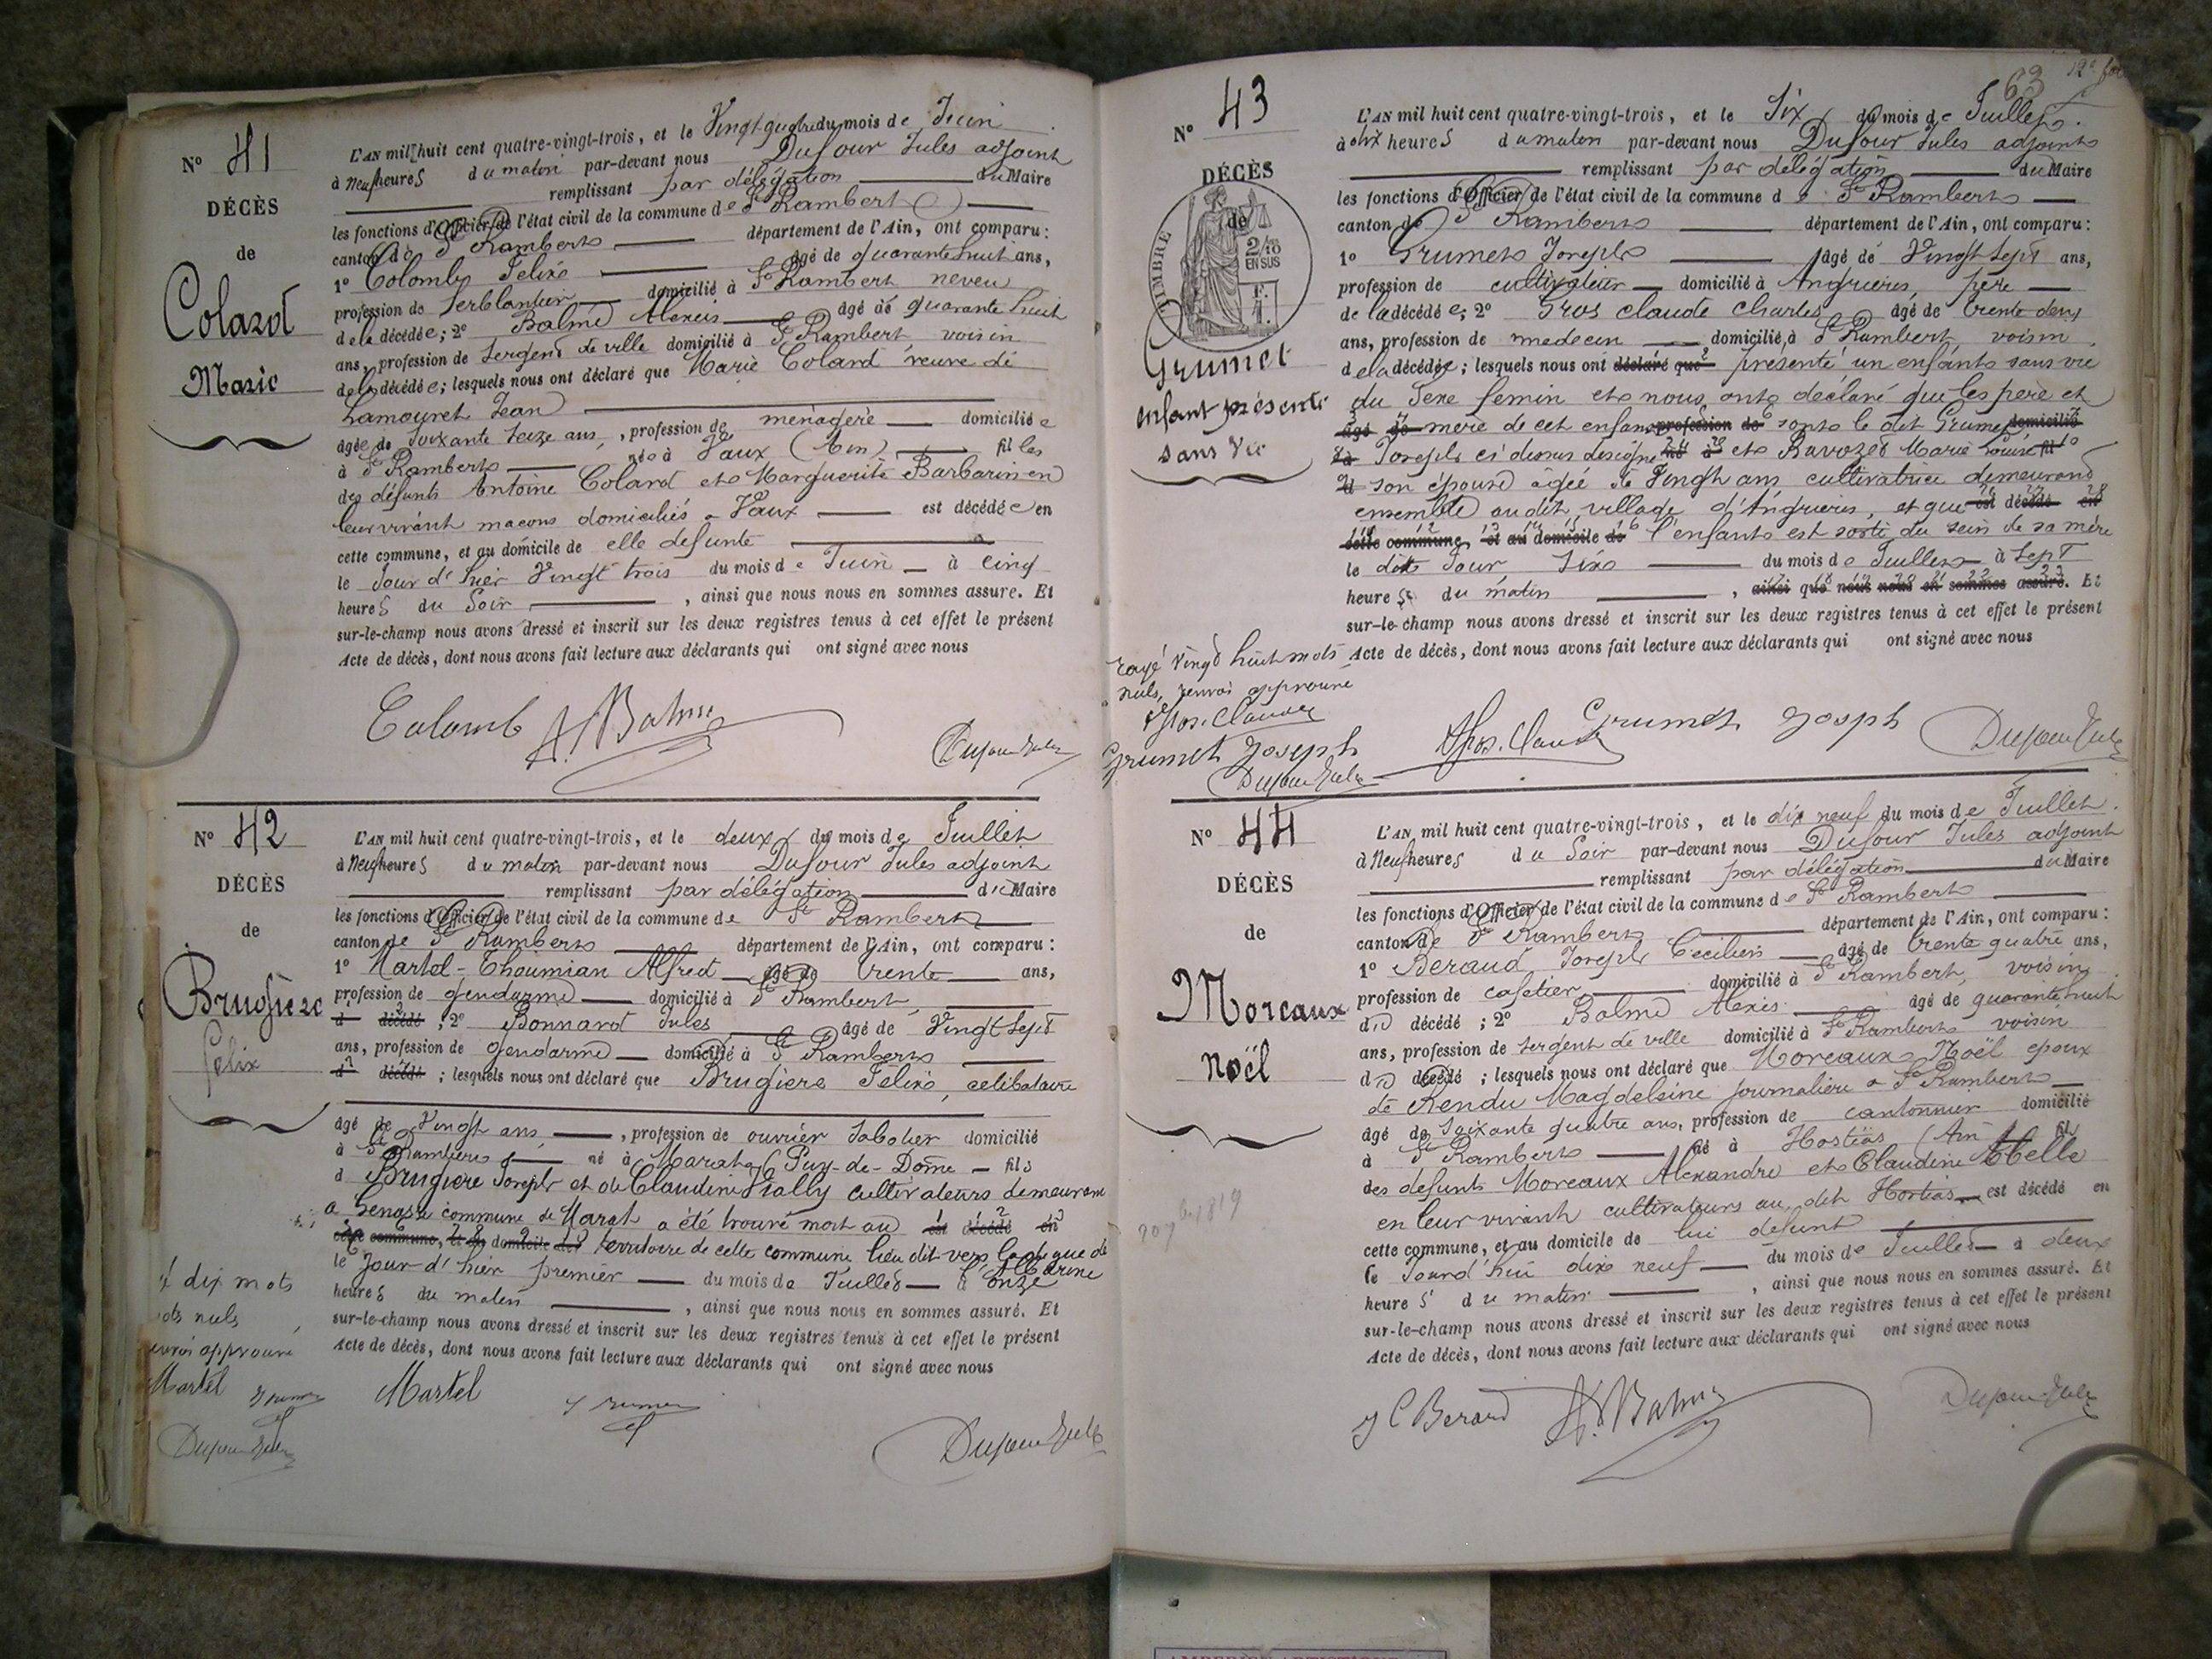 N° 41
DÉCÈS
de
Colard
Marie
L'AN mil huit cent quatre-vingt-trois, et le Vingt-quatre du mois de Juin
à Neuf heures du matin par-devant nous Dufour Jules adjoint
remplissant par délégation du Maire
les fonctions d'Officier de l'état civil de la commune de St Rambert
canton de St Rambert département de l'Ain, ont comparu :
1° Colomb Felix âgé de quarante huit ans,
profession de ferblantier domicilié à St Rambert neveu
de la décédée ; 2° Balme Alexis âgé de quarante huit
ans, profession de Sergent de ville domicilié à St Rambert, voisin
de la décédée ; lesquels nous ont déclaré que Marie Colard veuve de
Lamouret Jean
âgée de Soixante seize ans, profession de ménagère domiciliée
à St Rambert née à Vaux (Ain) fille
des défunts Antoine Colard et Marguerite Barbarin en
leur vivant maçons domiciliés à Vaux est décédée en
cette commune, et au domicile de elle defunte
le Jour d'hier Vingt trois du mois de Juin à cinq
heures du Soir , ainsi que nous nous en sommes assuré. Et
sur-le-champ nous avons dressé et inscrit sur les deux registres tenus à cet effet le présent
Acte de décès, dont nous avons fait lecture aux déclarants qui ont signé avec nous
Colomb A. Balme
Dufour Jules
N° 42
DÉCÈS
de
Brugiere
Felix
L'AN mil huit cent quatre-vingt-trois, et le deux du mois de Juillet
à Neuf heures du matin par-devant nous Dufour Jules adjoint
remplissant par délégation du Maire
les fonctions d'Officier de l'état civil de la commune de St Rambert
canton de St Rambert département de l'Ain, ont comparu :
1° Martel-Thoumian Alfred âgé de trente ans,
profession de gendarme domicilié à St Rambert
d décédé ; 2° Bonnard Jules âgé de Vingt Sept
ans, profession de gendarme domicilié à St Rambert
d décédé ; lesquels nous ont déclaré que Brugiere Felix, celibataire
âgé de Vingt ans, profession de ouvrier Sabotier domicilié
à St Rambert né à Marat (Puy-de-Dôme fils
d Brugiere Joseph et de Claudine Fially cultivateurs demeurant
a commune de Marat a été trouvé mort au est décédé en
cette commune, et au domicile de territoire de cette commune lieu dit vers la digue de l'Albarine
le Jour d'hier premier du mois de Juillet à onze
heures du matin , ainsi que nous nous en sommes assuré. Et
sur-le-champ nous avons dressé et inscrit sur les deux registres tenus à cet effet le présent
Acte de décès, dont nous avons fait lecture aux déclarants qui ont signé avec nous
dix mots
nuls
approuvé
Martel
Dufour Jules
Martel
Dufour Jules
63
N° 43
DÉCÈS
de
TIMBRE
2/10
EN SUS
Grumet
enfant présenté
sans vie
L'AN mil huit cent quatre-vingt-trois, et le Six du mois de Juillet
à dix heures du matin par-devant nous Dufour Jules adjoint
remplissant par délégation du Maire
les fonctions d'Officier de l'état civil de la commune de St Rambert
canton de St Rambert département de l'Ain, ont comparu :
1° Grumet Joseph âgé de Vingt Sept ans,
profession de cultivateur domicilié à Angrieres, père
de la décédée ; 2° Gros Claude Charles âgé de trente deux
ans, profession de medecin domicilié à St Rambert, voisin
de la décédée ; lesquels nous ont déclaré que présenté un enfant sans vie
du Sexe feminin et nous ont déclaré que les père et
âgé de mère de cet enfant profession de sont le dit Grumet domicilié
à Joseph ci dessus désigné né à et Ravozet Marie Louise fil
d son épouse âgée de Vingt ans cultivatrice demeurant
ensemble au dit village d'Angrieres, et que est décédé en
cette commune, et au domicile de l'enfant est sorti du sein de sa mère
le dit Jour Six du mois de Juillet à Sept
heures du matin , ainsi que nous nous en sommes assuré. Et
sur-le-champ nous avons dressé et inscrit sur les deux registres tenus à cet effet le présent
Acte de décès, dont nous avons fait lecture aux déclarants qui ont signé avec nous
rayé Vingt huit mots
nuls, renvoi approuvé
Gros. Claude
Grumet Joseph
Dufour Jules
Gros. Claude Grumet Joseph Dufour Jules
N° 44
DÉCÈS
de
Moreaux
Noël
L'AN mil huit cent quatre-vingt-trois, et le dix neuf du mois de Juillet
à Neuf heures du Soir par-devant nous Dufour Jules adjoint
remplissant par délégation du Maire
les fonctions d'Officier de l'état civil de la commune de St Rambert
canton de St Rambert département de l'Ain, ont comparu :
1° Beraud Joseph Cecilien âgé de trente quatre ans,
profession de cafetier domicilié à St Rambert, voisin
du décédé ; 2° Balme Alexis âgé de quarante huit
ans, profession de Sergent de ville domicilié à St Rambert voisin
du décédé ; lesquels nous ont déclaré que Moreaux Noël epoux
de Rendu Magdeleine journaliere a St Rambert
âgé de Soixante quatre ans, profession de cantonnier domicilié
à St Rambert né à Hostias (Ain fils
des défunts Moreaux Alexandre et Claudine Abelle
en leur vivant cultivateurs au dit Hostias est décédé en
cette commune, et au domicile de lui defunt
le Jourd'hui dix neuf du mois de Juillet à deux
heures du matin , ainsi que nous nous en sommes assuré. Et
sur-le-champ nous avons dressé et inscrit sur les deux registres tenus à cet effet le présent
Acte de décès, dont nous avons fait lecture aux déclarants qui ont signé avec nous
J C Beraud A. Balme Dufour Jules